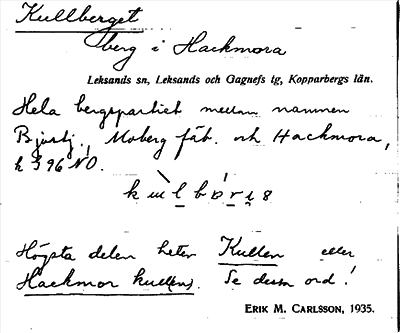 Kullberget
berg i Hackmora
Leksands sn, Leksands och Gagnefs tg, Kopparbergs län.
Hela bergspartiet mellan namnen
Bjursbj., Moberg fäb. och Hackmora,
k 396 NO.
Högsta delen heter Kullen eller
Hackmor kull(en). Se dessa ord!
ERIK M. CARLSSON, 1935.